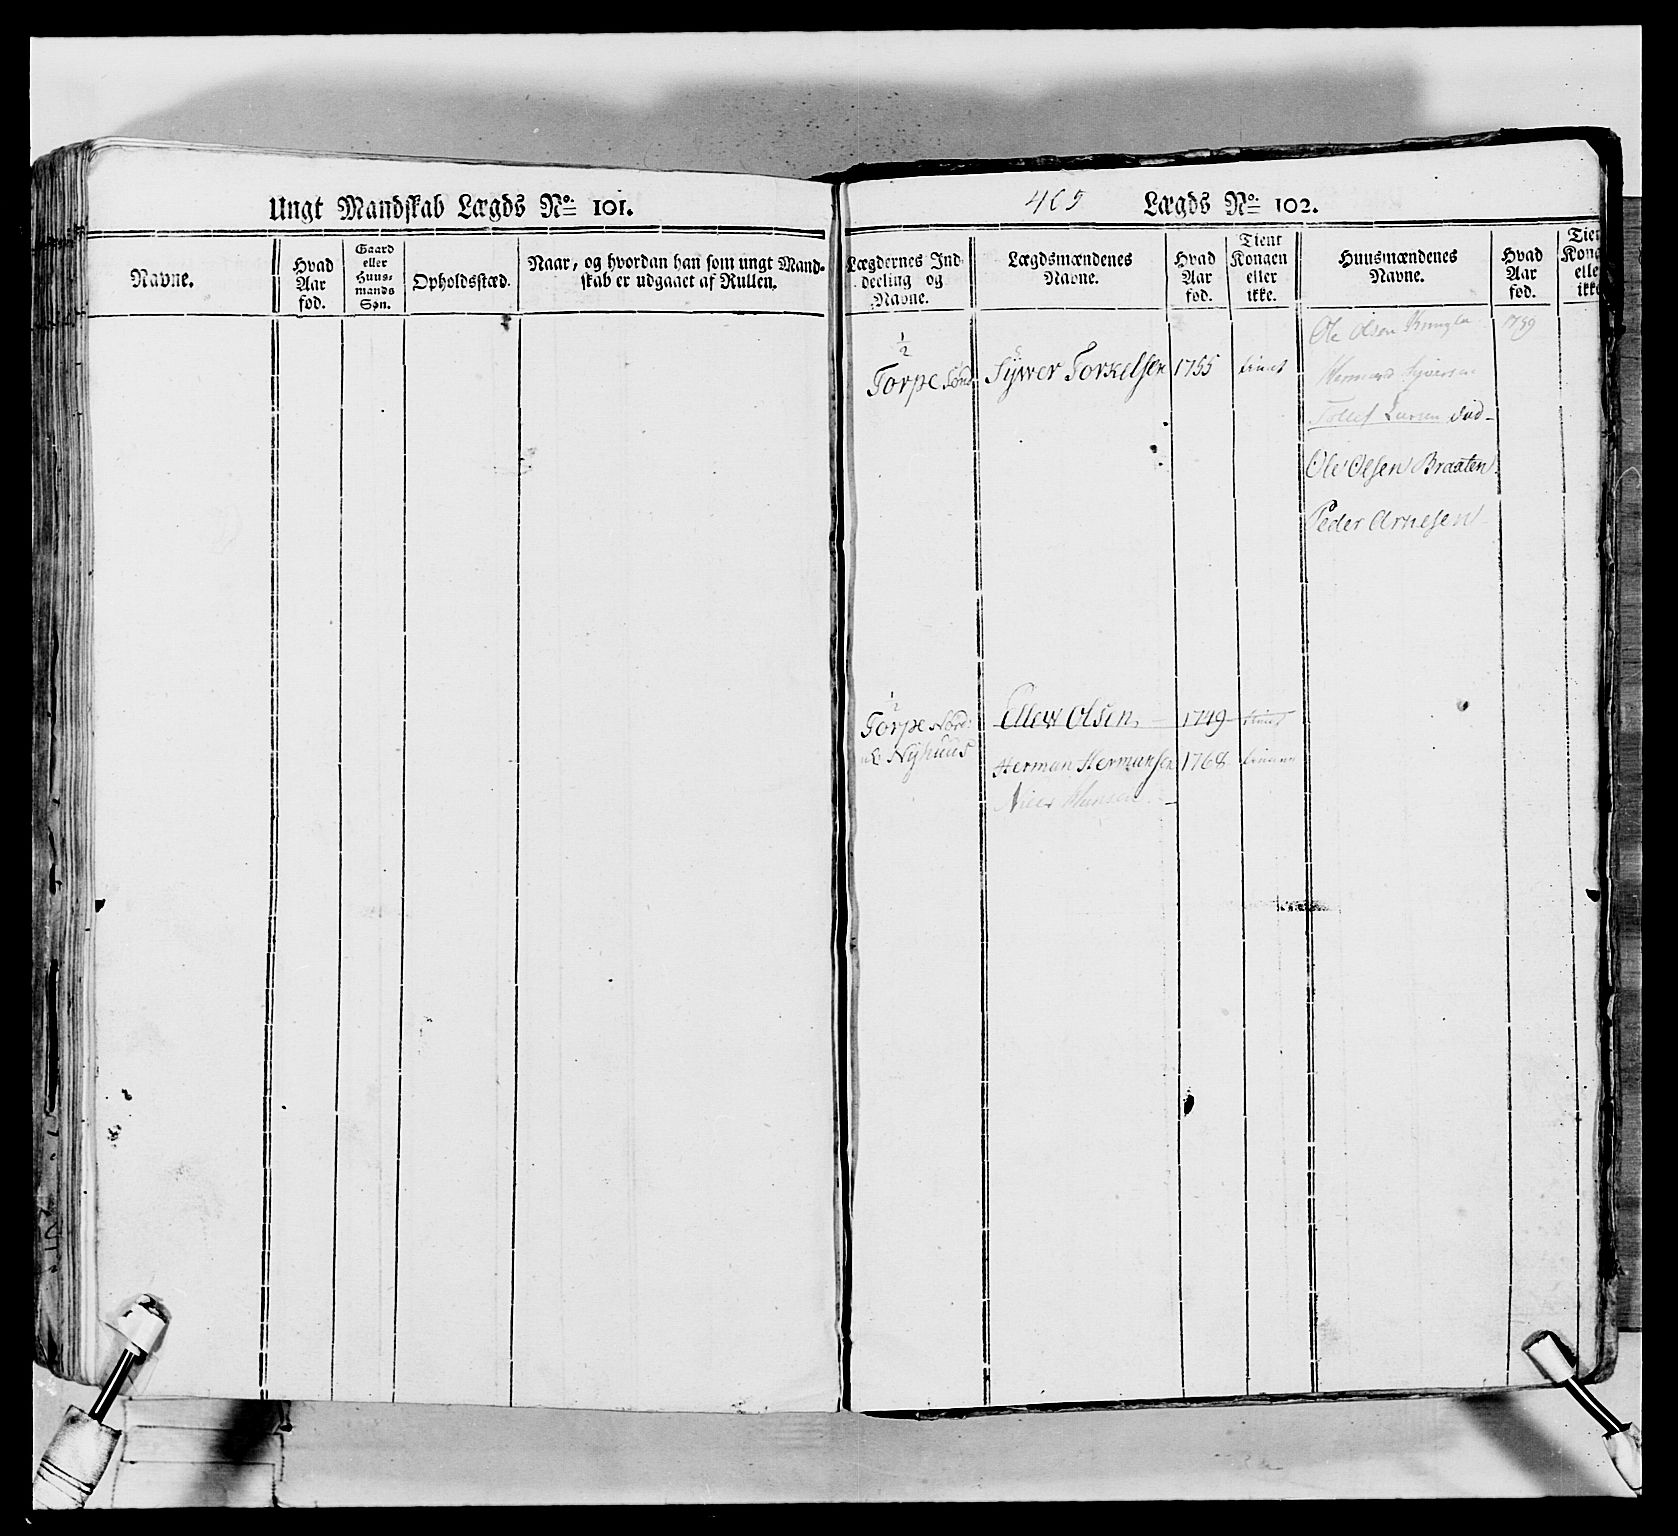 Ungt Mandskab Lægds No. 101.
Navne.
Hvad
Aar
fød.
Gaard
eller
Huus-
mands
Søn.
Opholdsstæd.
Naar, og hvordan han som ungt Mand-
skab er udgaaet af Rullen.
Lægds No. 102.
Lægdernes Ind-
deeling og
Navne.
Lægdsmændenes
Navne.
Hvad
Aar
fød.
Tient
Kongen
eller
ikke.
Huusmændenes
Navne.
Hvad
Aar
fød.
Tien
Kong
elle
ikk
1/2
Torpe Sønd Sywer Torkelsen 1755 tient
Ole Olsen 1759
Syversen
Tollef Larsen Ind-
Ole Olsen Braaten
Peder Arnesen
1/2
Torpe Nord: Ellew Olsen 1749 tient
Nyhuus Herman Hermansen 1768
Niels Hansen